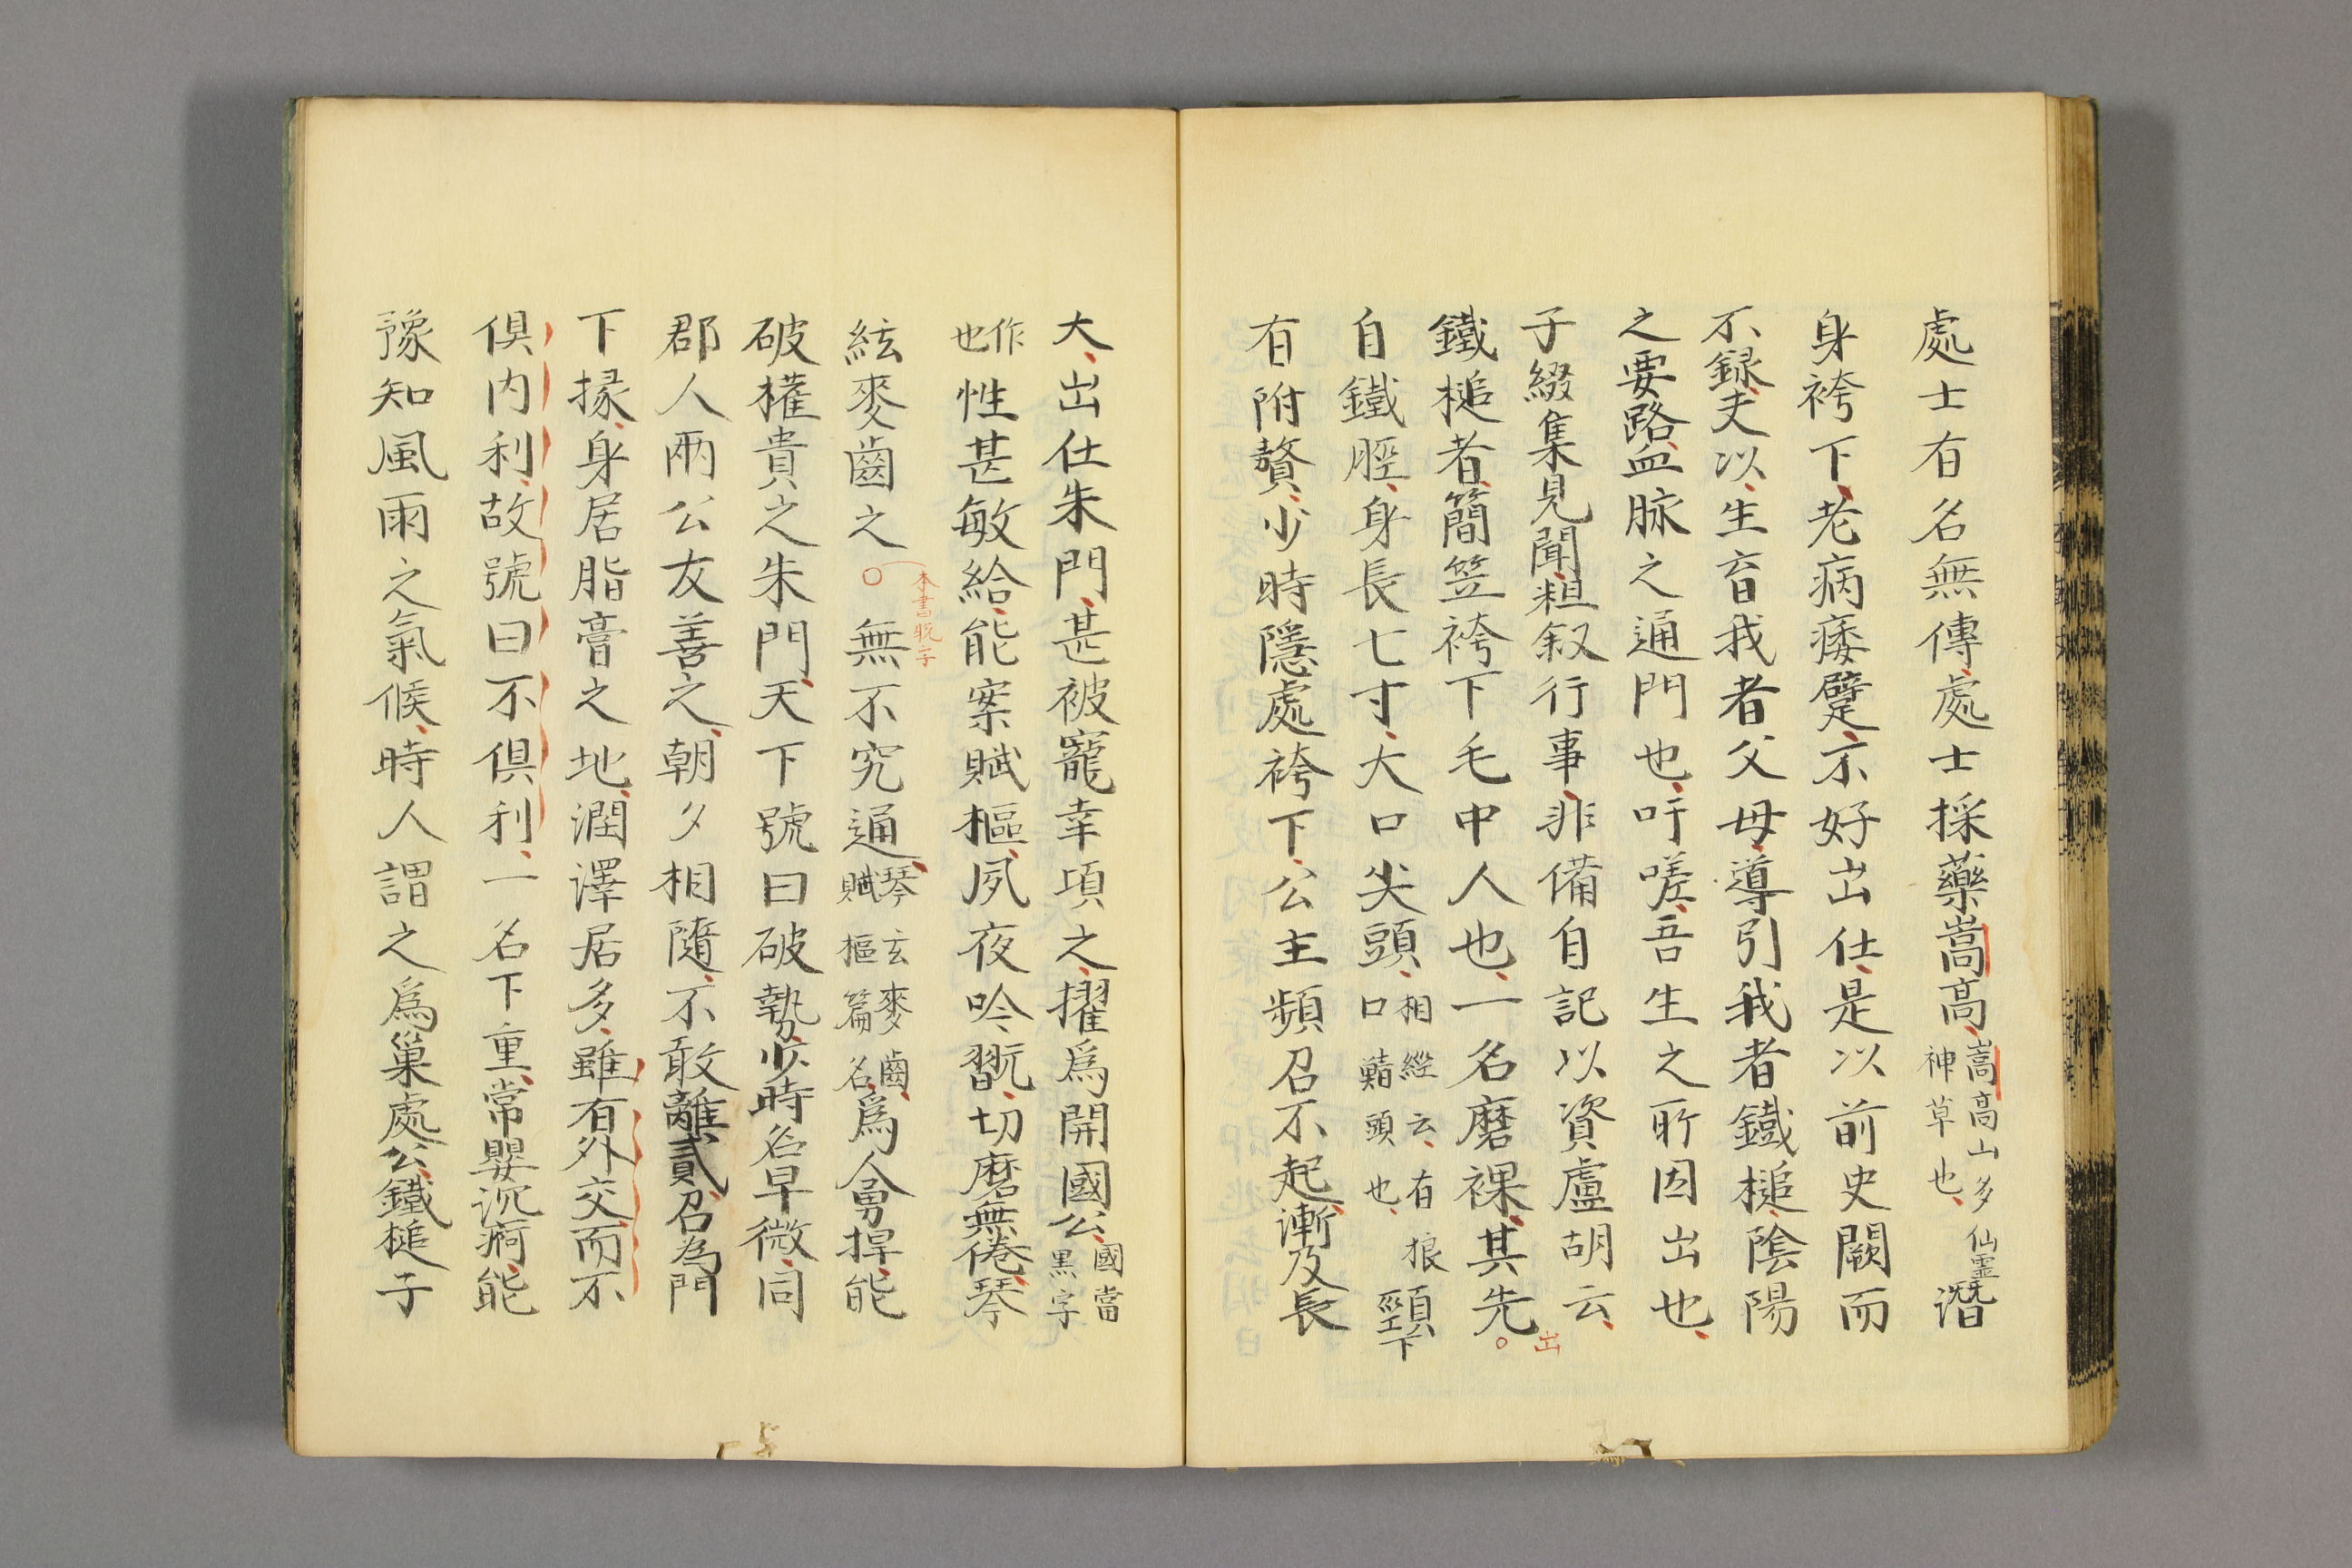 處士有名無傳處士採藥嵩高嵩高山多仙靈神草也潛
身袴下老病痿躄不好出仕是以前史闕而
不録夫以生育我者父母導引我者鐵槌陰陽
之要路血脉之通門也吁嗟吾生之所因出也
子綴集見聞粗叙行事非備自記以資盧胡云
鐵槌者簡笠袴下毛中人也一名磨裸其先出
自鐵脛身長七寸大口尖頭相經云有狼口䵻頭也頸下
有附贅少時隱處袴下公主頻召不起漸及長
大出仕朱門甚被寵幸項之擢爲開國公國當黑字
作也性甚敏給能案賦樞夙夜吟翫切磨無倦琴
絃麥齒之
本書脱字
無不究通琴玄麥齒賦樞篇名爲人勇捍能
破權貴之朱門天下號曰破勢少時名早微同
郡人兩公友善之朝夕相隨不敢離貳召為門
下掾身居脂膏之地潤澤居多雖有外交而不
倶内利故號曰不倶利一名下重常嬰沉痾能
豫知風雨之氣候時人謂之爲巢處公鐵槌子